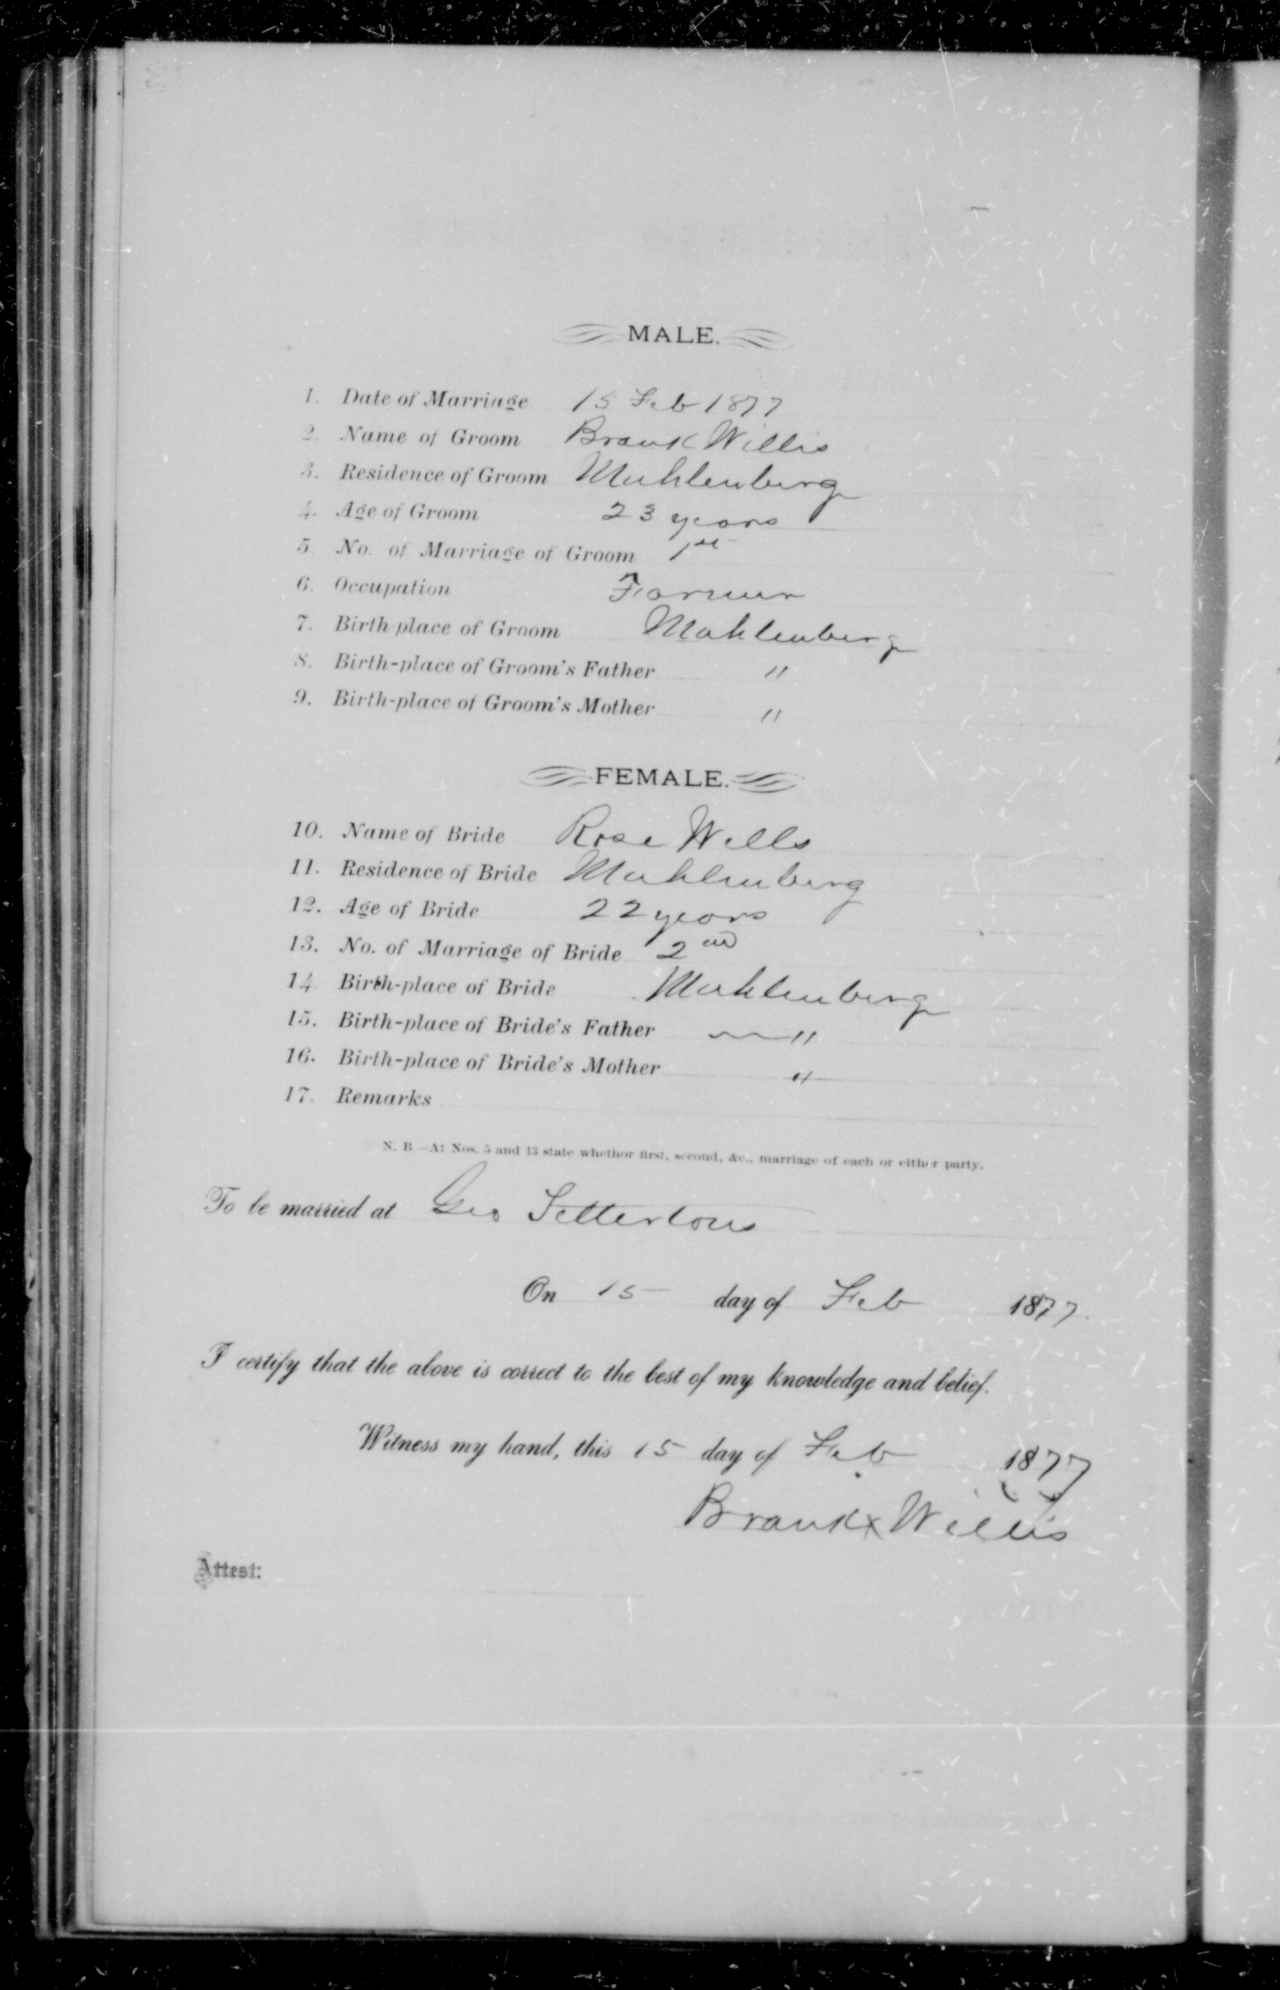 MALE.
1. Date of Marriage 15 Feb 1877
2. Name of Groom Brank Willis
3. Residence of Groom Muhlenberg
4. Age of Groom 23 years
5 No. of Marriage of Groom 1st
6. Occupation Farmer
7. Birth place of Groom Mohlenberg
8. Birth-place of Groom's Father "
9. Birth-place of Groom's Mother "
FEMALE.
10. Name of Bride Rose Wells
11. Residence of Bride Muhlenberg
12. Age of Bride 22 years
13. No. of Marriage of Bride 2nd
14 Birth-place of Bride Muhlenberg
15. Birth-place of Bride's Father "
16. Birth-place of Bride's Mother "
17. Remarks
N. B —At Nos. 5 and 13 state whether first, second, &c., marriage of each or either party.
To be married at Geo
On 15 day of Feb 1877.
I certify that the above is correct to the best of my knowledge and belief.
Witness my hand, this 15 day of Feb 1877
Brank x Willis
Attest: